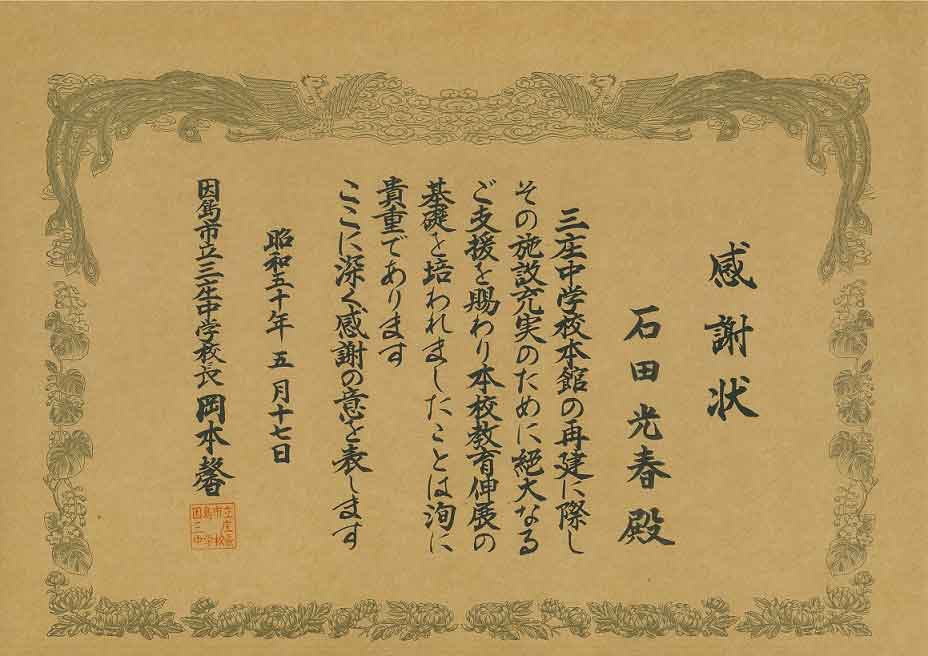 感謝状
石田光春殿
三庄中学校本館の再建に際し
その施設充実のために絶大なる
ご支援を賜わり本校教育伸展の
基礎を培われましたことは洵に
貴重であります
ここに深く感謝の意を表します
昭和五十年五月十七日
因島市立三庄中学校長 岡本馨
因島市立三庄中学校長